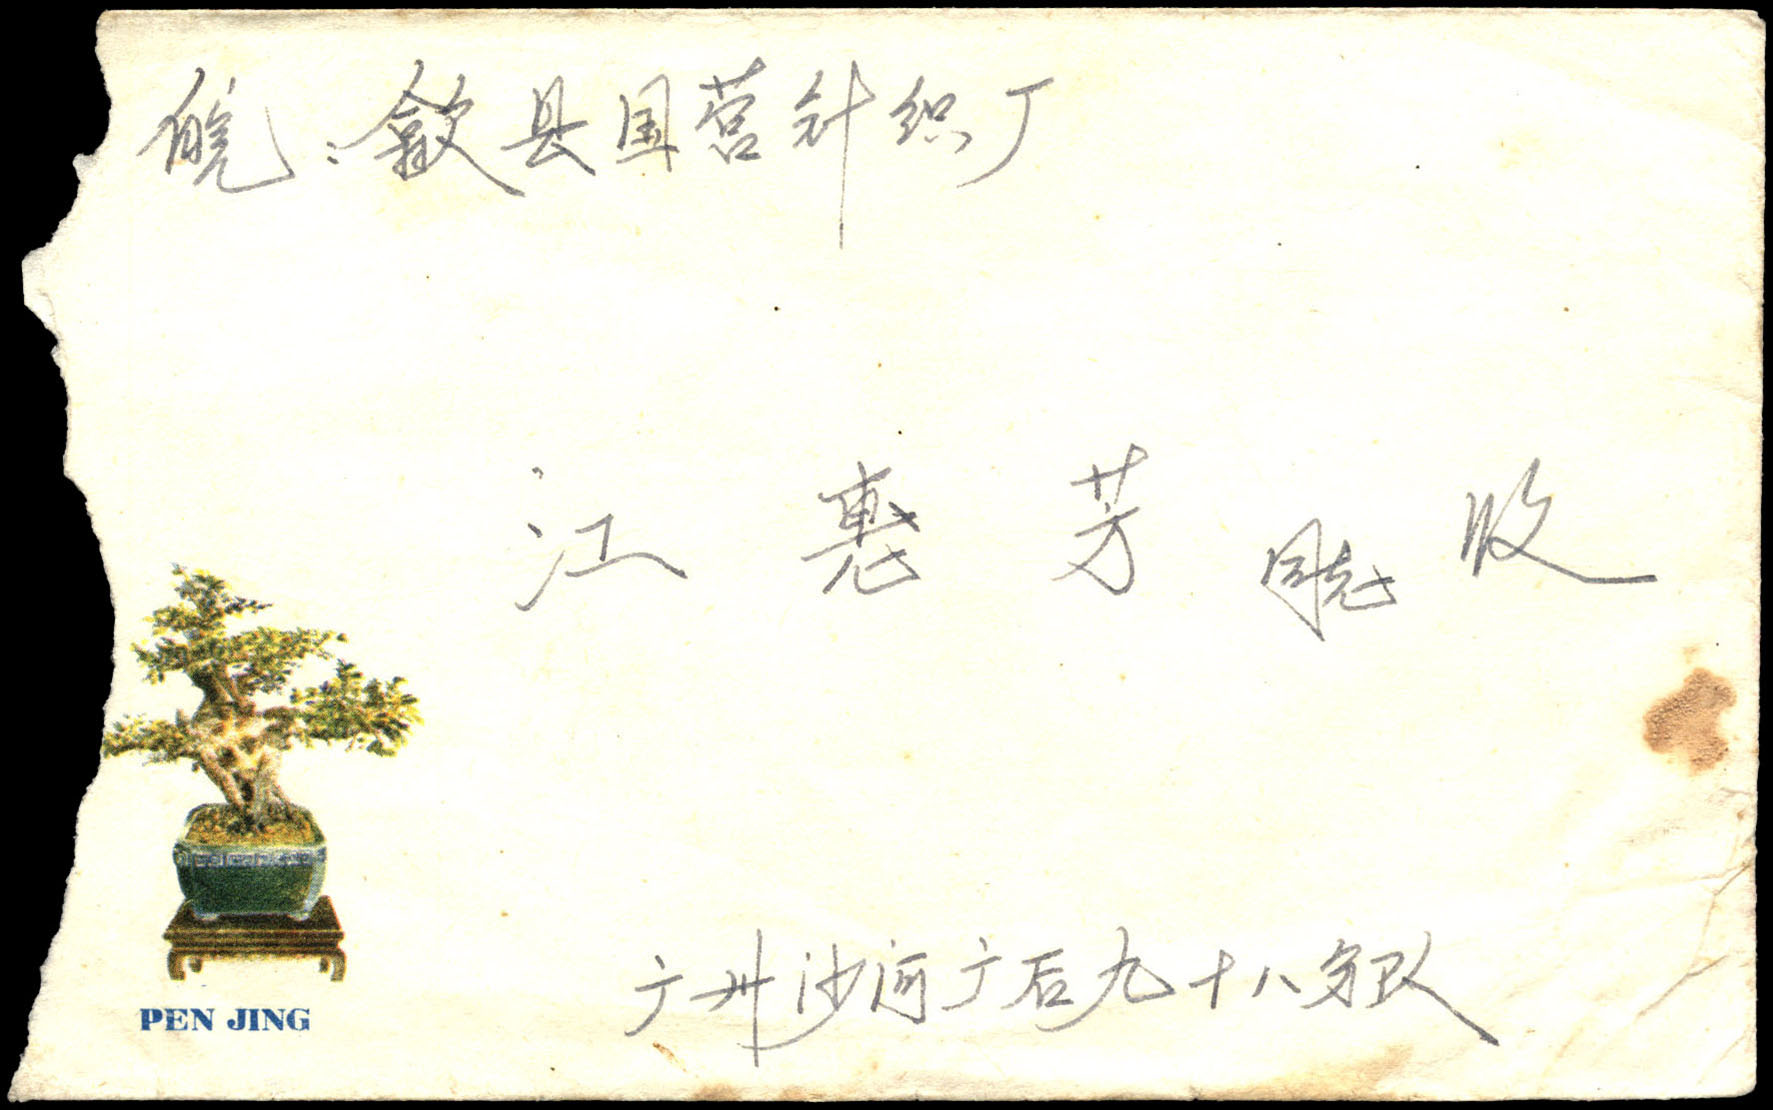 皖：歙县国营针织厂
江惠芳同志收
广州沙河广后九十八分队
PEN JING